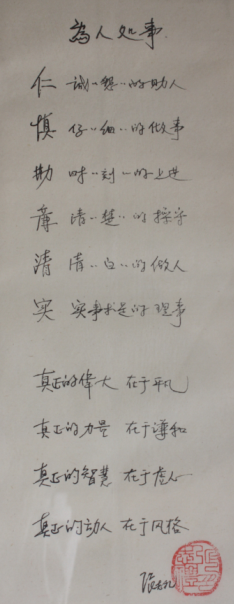 為人处事
仁 诚〃懇〃的助人
慎 仔〃细〃的做事
勤 时〃刻〃的上进
廉 清〃楚〃的操守
清 清〃白〃的做人
实 实事求是的理事
真正的偉大 在于平凡
真正的力量 在于溥和
真正的智慧 在于虚心
真正的动人 在于风格
张